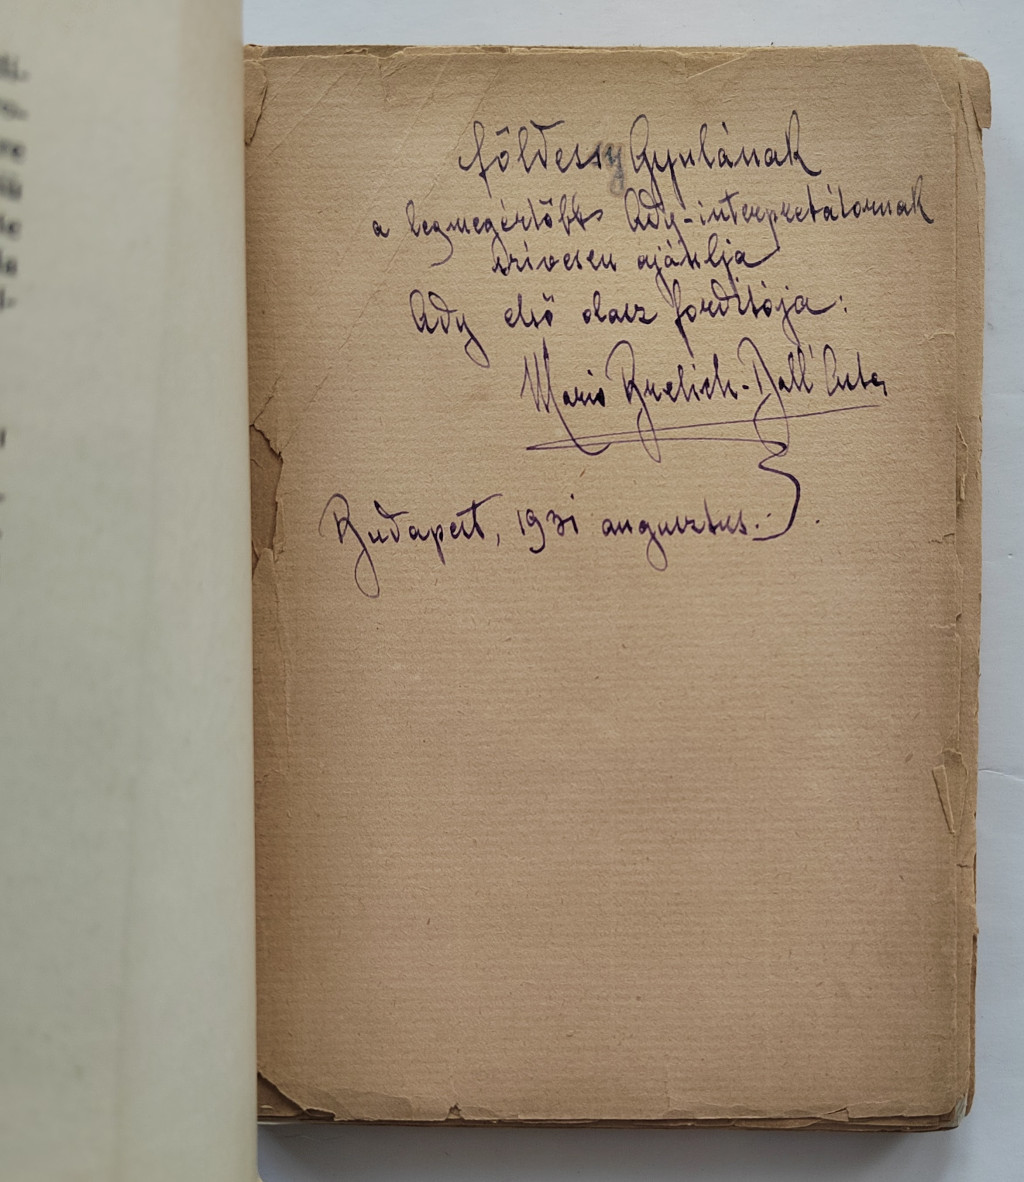 Földessy Gyulának
a legmegértőbb Ady-interpretátornak
szivesen ajánlja
Ady első olasz forditója:
Mario Brelich-Dall'Asta
Budapest, 1931 augusztus.